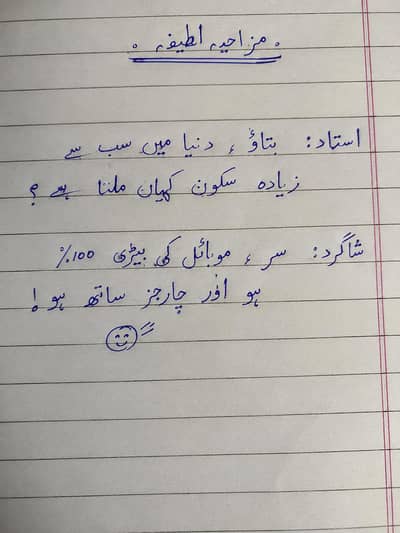 مزاحیہ لطیفہ
استاد: بتاؤ ، دنیا میں سب سے
زیادہ سکون کہاں ملتا ہے ؟
شاگرد: سر ، موبائل کی بیٹری 100%
ہو اور چارجر ساتھ ہو!